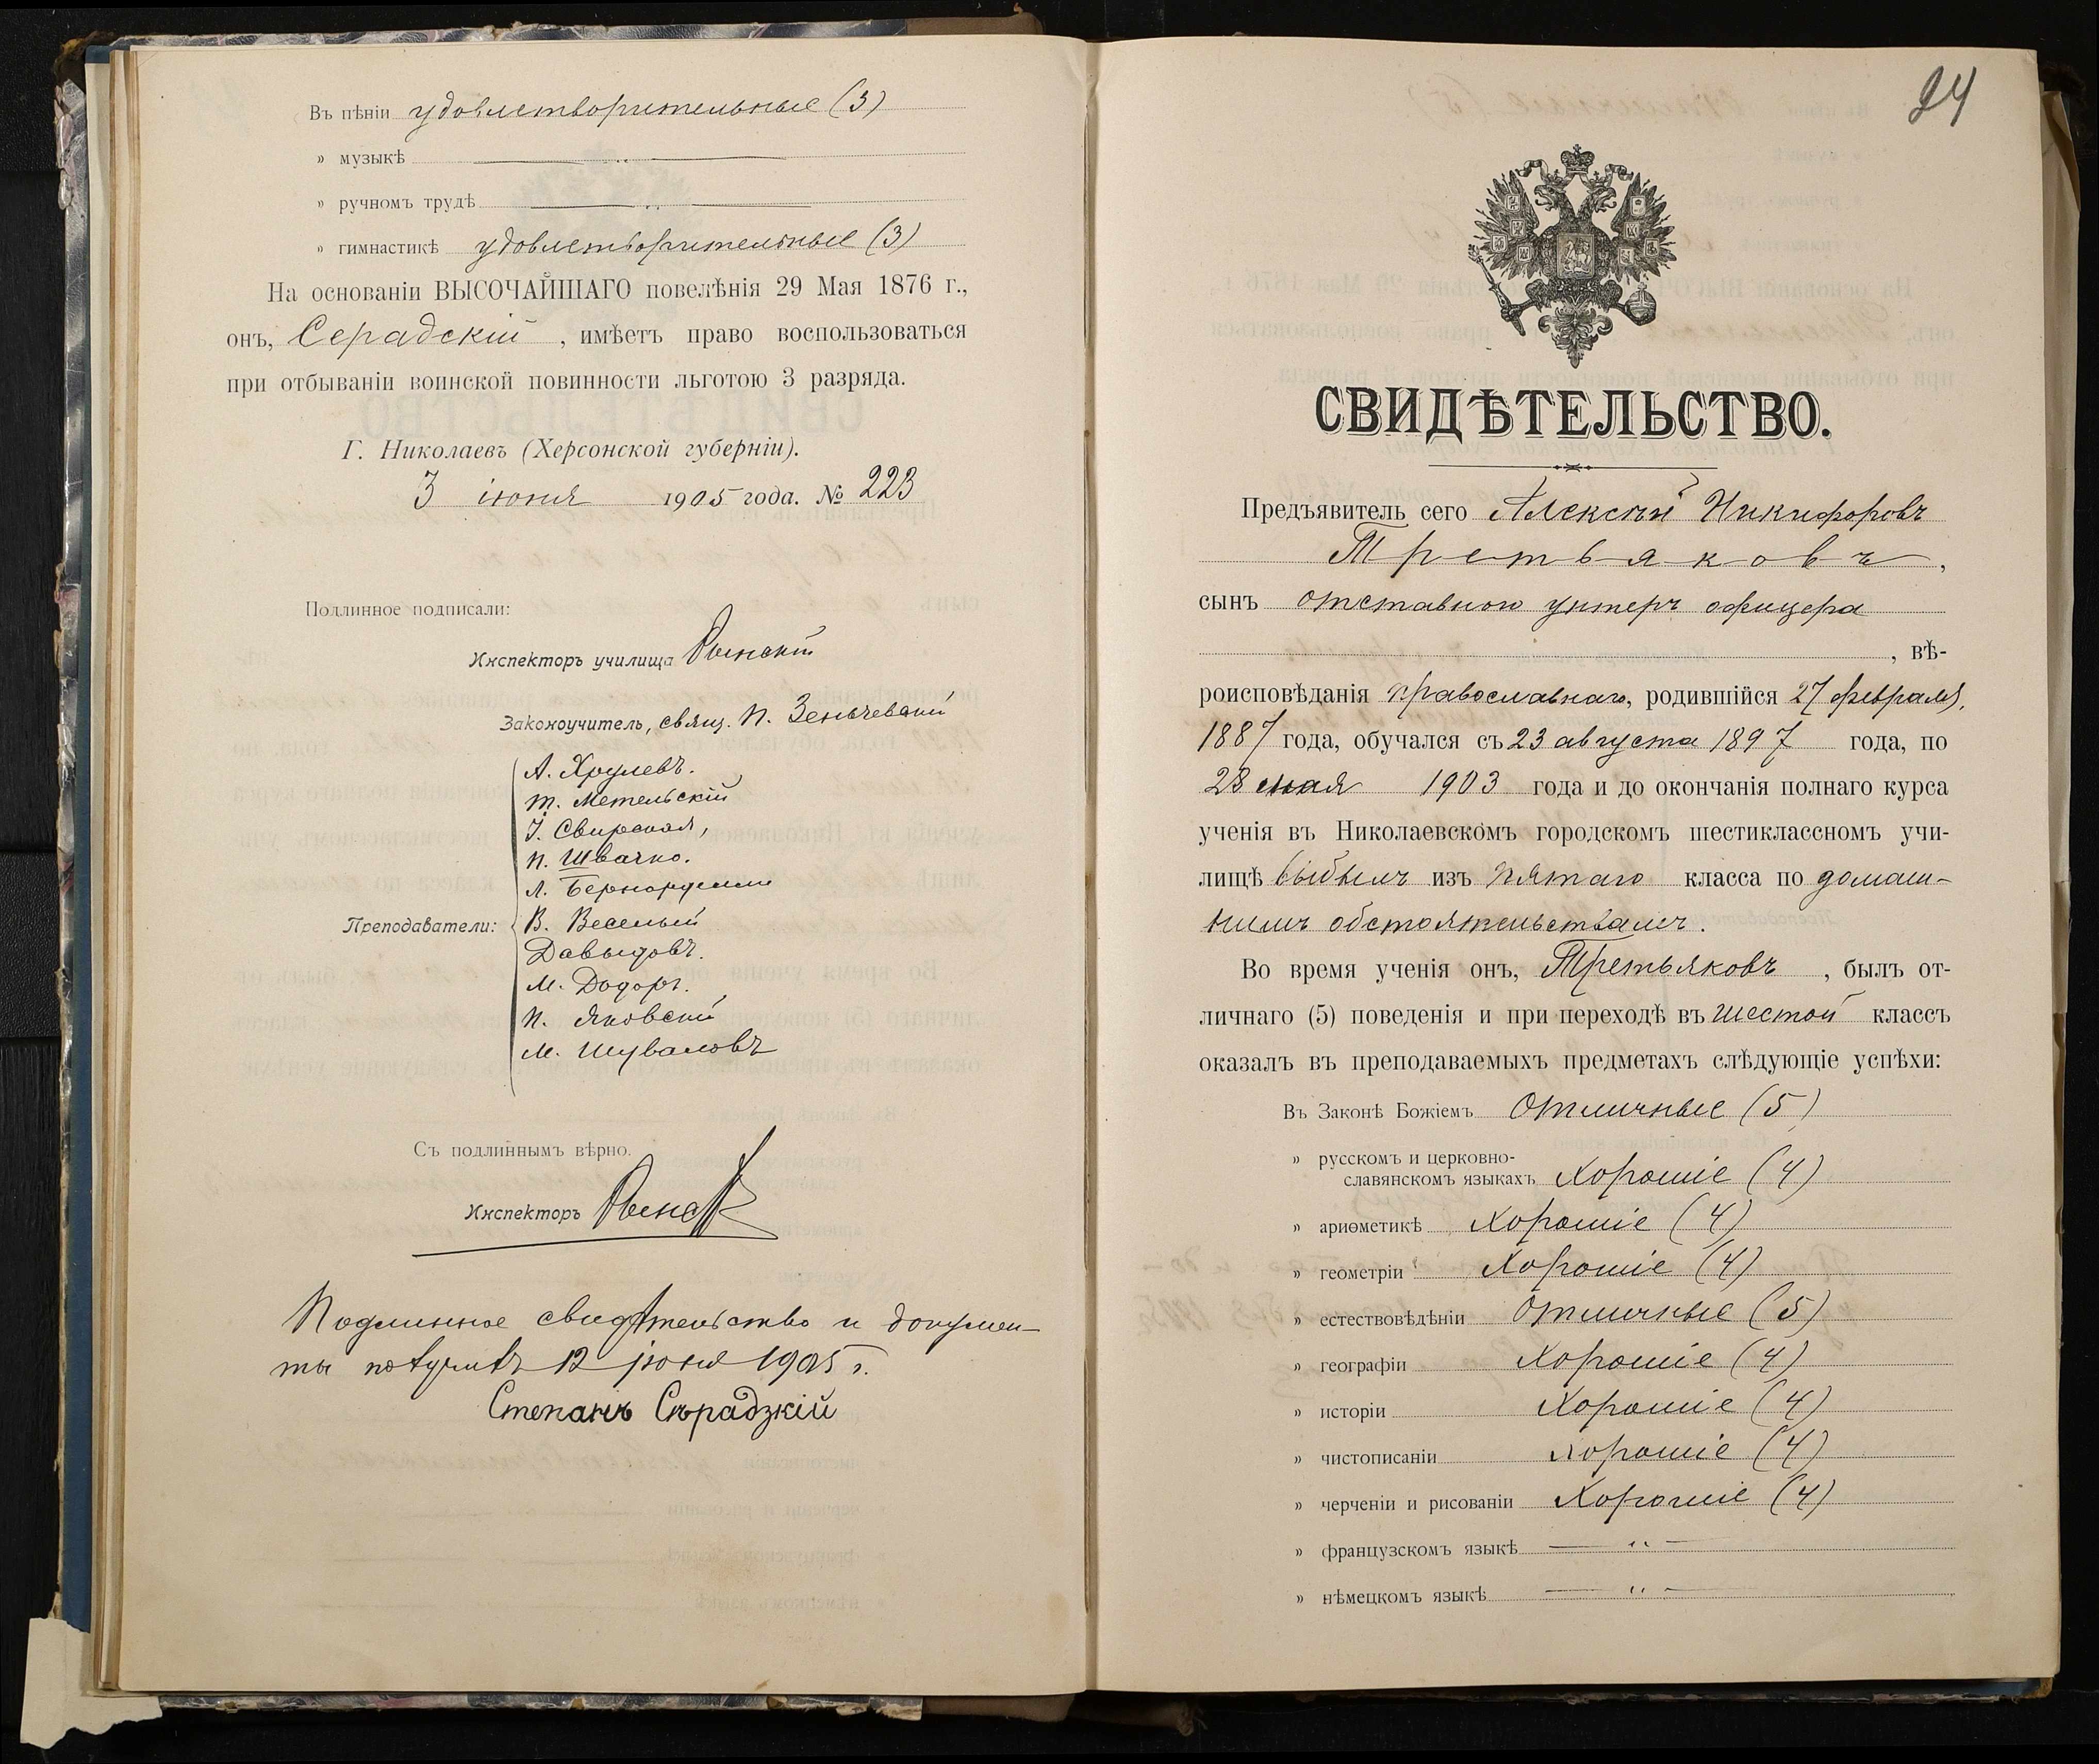 Въ пѣніи удовлетворительные (3)
» музыкѣ
» ручномъ трудѣ
» гимнастикѣ удовлетворительные (3)
На основаніи ВЫСОЧАЙШАГО повелѣнія 29 Мая 1876 г.,
онъ, Серадскій, имѣетъ право воспользоваться
при отбываніи воинской повинности льготою 3 разряда.
Г. Николаевъ (Херсонской губерніи).
3 іюня 1905 года. № 223
Подлинное подписали:
Инспекторъ училища
Законоучитель, свящ. П. Зеньчевскій
А. Хрулевъ.
Т. Метельскій
І. Свирская,
П. Швачко.
Л.
Преподаватели: В. Веселый
Давыдовъ.
М. Додоръ.
П. Яновскій
М. Шуваловъ
Съ подлиннымъ вѣрно.
Инспекторъ
Подлинное свидѣтельство и докумен-
ты получилъ 12 іюня 1905 г.
Степанъ Сѣрадзкій
24
СВИДѢТЕЛЬСТВО.
Предъявитель сего Алексѣй Никифоровъ
Третьяковъ,
сынъ отставного унтеръ офицера
, вѣ-
роисповѣданія православнаго, родившійся 27 февраля
1887 года, обучался съ 23 августа 1897 года, по
28 мая 1903 года и до окончанія полнаго курса
ученія въ Николаевскомъ городскомъ шестиклассномъ учи-
лищѣ выбылъ изъ пятаго класса по домаш-
нимъ обстоятельствамъ.
Во время ученія онъ, Третьяковъ, былъ от-
личнаго (5) поведенія и при переходѣ въ шестой классъ
оказалъ въ преподаваемыхъ предметахъ слѣдующіе успѣхи:
Въ Законѣ Божіемъ Отличные (5)
» русскомъ и церковно-
славянскомъ языкахъ Хорошіе (4)
» ариѳметикѣ Хорошіе (4)
» геометріи Хорошіе (4)
» естествовѣдѣніи Отличные (5)
» географіи Хорошіе (4)
» исторіи Хорошіе (4)
» чистописаніи Хорошіе (4)
» черченіи и рисованіи Хорошіе (4)
» французскомъ языкѣ
» нѣмецкомъ языкѣ